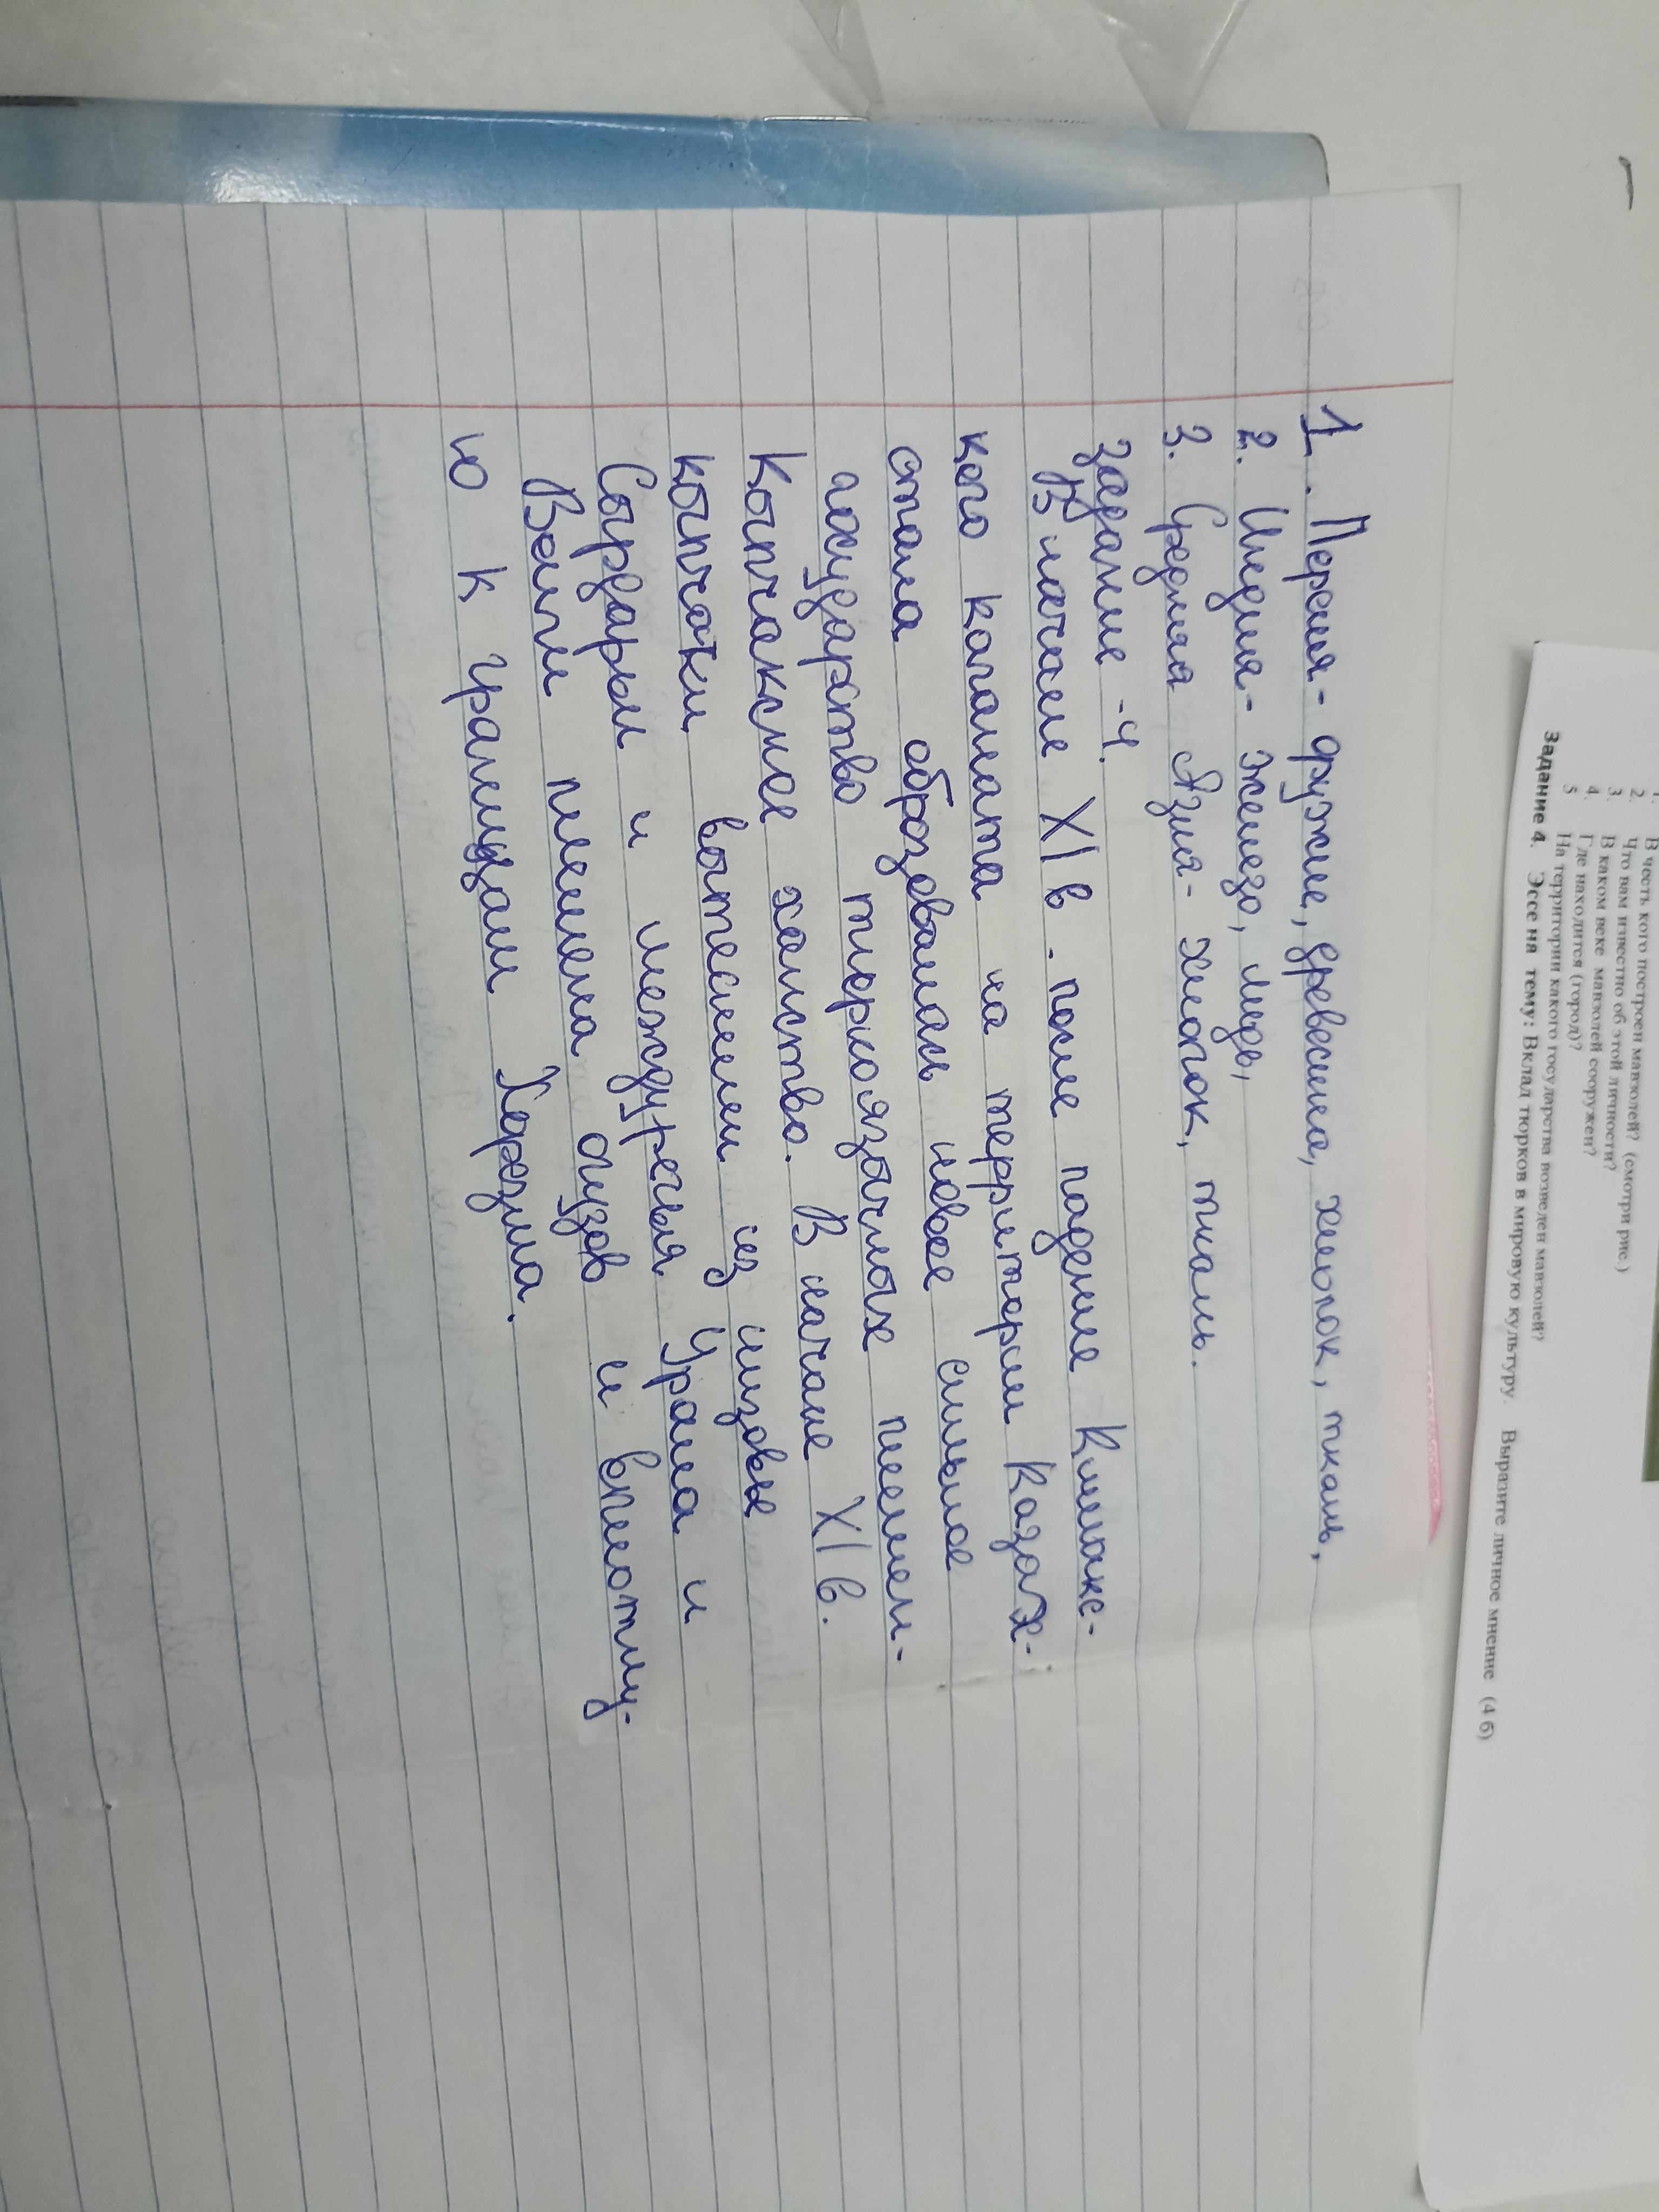 1. Персия - оружие, древесина, хлопок, ткань,
2. Индия - железо, медь,
3. Средняя Азия - хлопок, ткань.
задание - 4.
В начале XI в. после падение Кимакс-
кого каганата на территории Казах-
стана образовалась новое сильное
государство тюркоязычных племен-
Кыпчакское ханство. В начале XI в.
кыпчаки вытеснили из низовье
Сырдарьи и междуречья Урала и
Волги племена огузов и вплотну-
ю к границам Хорезма.
В честь кого построен мавзолей? (смотри рис.)
2. Что вам известно об этой личности?
3. В каком веке мавзолей сооружен?
4. Где находится (город)?
5 На территории какого государства возведен мавзолей?
Задание 4. Эссе на тему: Вклад тюрков в мировую культуру. Выразите личное мнение (4 б)